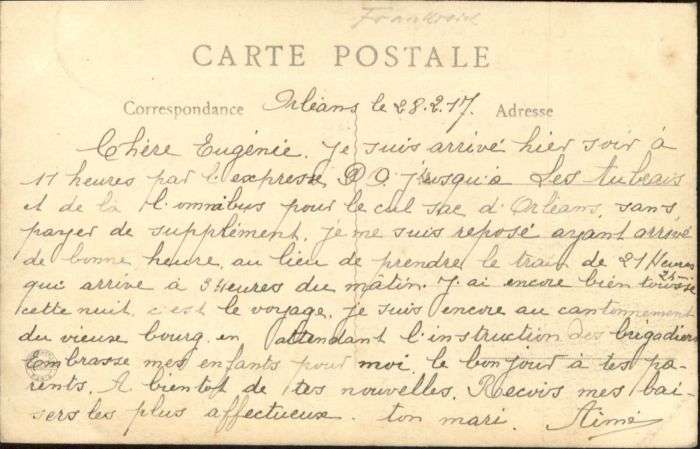 Frankreich
CARTE POSTALE
Correspondance Orléans le 28.2.17. Adresse
Chère Eugénie. Je suis arrivé hier soir à
11 heures par l'express P.O. jusqu'à Les Aubrais
et de là l'omnibus pour le cul sac d'Orléans, sans
payer de supplément, je me suis reposé ayant arrivé
de bonne heure, au lieu de prendre le train de 21 Heures
qui arrive à 3 Heures du matin. J'ai encore bien toussé
cette nuit, c'est le voyage, je suis encore au cantonnement
du vieux bourg en attendant l'instruction des brigadiers
Embrasse mes enfants pour moi, le bonjour à tes pa-
rents. A bientôt de tes nouvelles, Reçois mes bai-
sers les plus affectueux. ton mari. Aimé